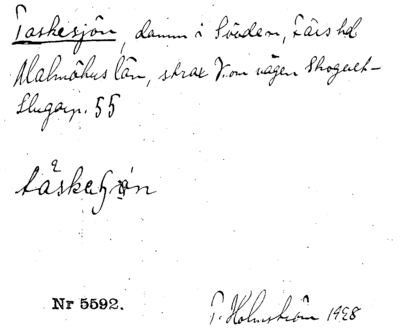 Taskesjön, damm i Sövden, Färs hd
Malmöhus län, strax V. om vägen Skogvet-
Slugarp. 55
Nr 5592.
T. Holmström 1928